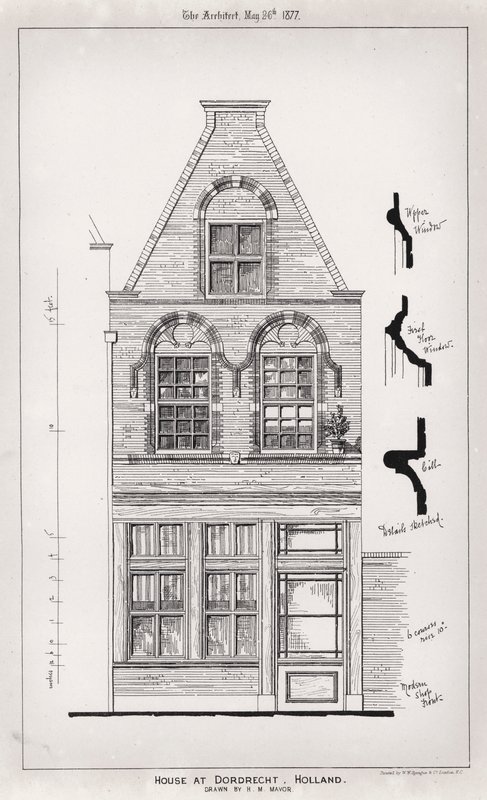 The Architect, May 26th 1877.
Upper
Window
First
Floor
Window.
15 feet.
10
Cill
Details sketched.
5
4
3
2
1
0
6 courses
rise 18"
Modern
Shop
Front
Printed by W. W. Sprague & Co London, E.C.
HOUSE AT DORDRECHT, HOLLAND.
DRAWN BY H. M. MAVOR